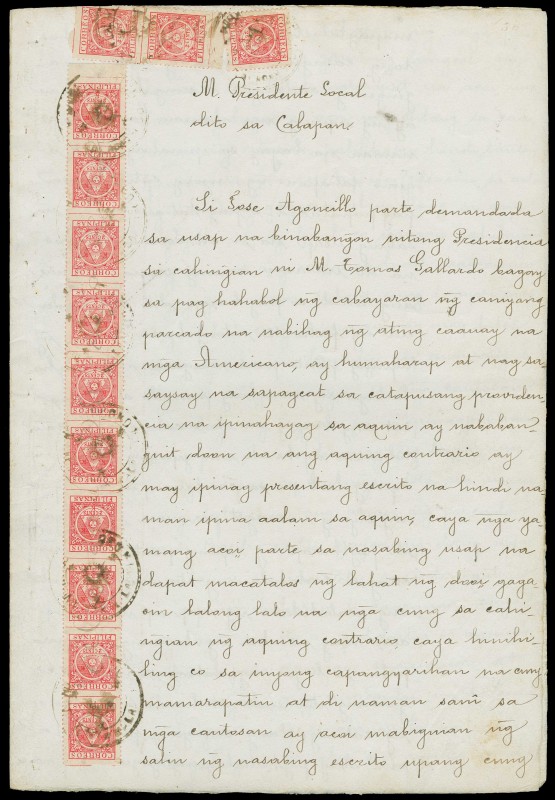 M. Presidente Local
dito sa Calapan.
Si Jose Agoncillo parte demandada
sa usap na binabangon nitong Presidencia
sa cahingian ni M. Tomas Gallardo bagay
sa pag hahabol ng̃ cabayaran ng̃ caniyang
parcado na nabihag ng̃ ating caauay na
mg̃a Americano, ay humaharap at nag sa-
saysay na sapagcat sa catapusang providen-
cia na ipinahayag sa aquin ay nababan-
guit doon na ang aquing contrario ay
may ipinag presentang escrito na hindi na-
man ipina aalam sa aquin, caya ng̃a ya-
mang acoi parte sa nasabing usap na
dapat macatalos ng̃ lahat ng̃ dooi gaga-
oin lalong lalo na ng̃a cung sa cahi-
ngian ng̃ aquing contrario, caya hinihi-
ling co sa inyong capangyarihan na cung
mamarapatin at di naman sani sa
mg̃a cantosan ay acoi mabiguian ng̃
salin ng̃ nasabing escrito upang cung
CORREOS
FILIPINAS
CORREOS
FILIPINAS
CORREOS
FILIPINAS
CORREOS
FILIPINAS
CORREOS
FILIPINAS
CORREOS
FILIPINAS
CORREOS
FILIPINAS
CORREOS
FILIPINAS
CORREOS
FILIPINAS
CORREOS
FILIPINAS
CORREOS
FILIPINAS
CORREOS
FILIPINAS
CORREOS
FILIPINAS